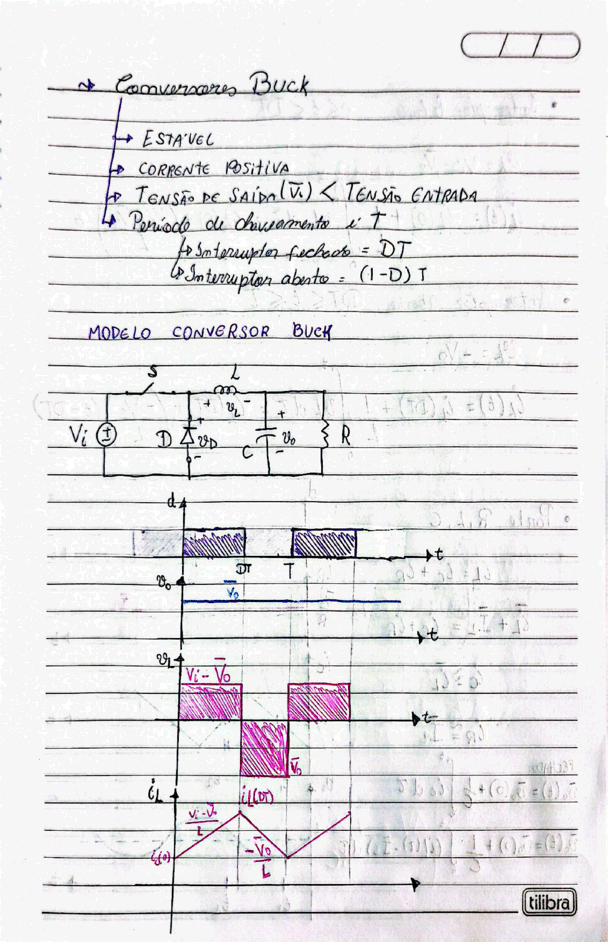 Conversores Buck
ESTÁVEL
CORRENTE POSITIVA
TENSÃO DE SAÍDA (V̄i) < TENSÃO ENTRADA
Período de chaveamento é T
Interruptor fechado = DT
Interruptor aberto = (1-D) T
MODELO CONVERSOR BUCK
S L
+ vL -
Vi ± D + vD - C + vo - R
d
DT T t
vo
V̄o
t
vL
Vi - V̄o
t
V̄o
iL iL(DT)
Vi - V̄o / L
iL(0) -V̄o / L
tilibra